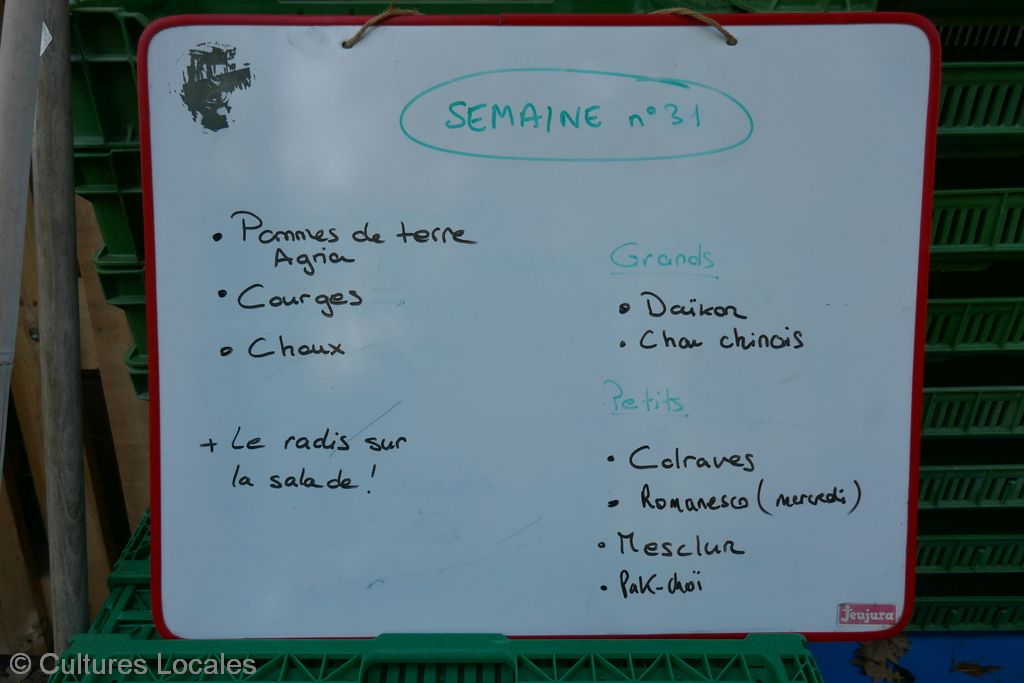 SEMAINE n°31
• Pommes de terre
Agria
• Courges
• Choux
+ Le radis sur
la salade !
Grands
• Daïkon
• Chou chinois
Petits
• Colraves
• Romanesco (mercredi)
• Mesclun
• Pak-choï
Jeujura
© Cultures Locales